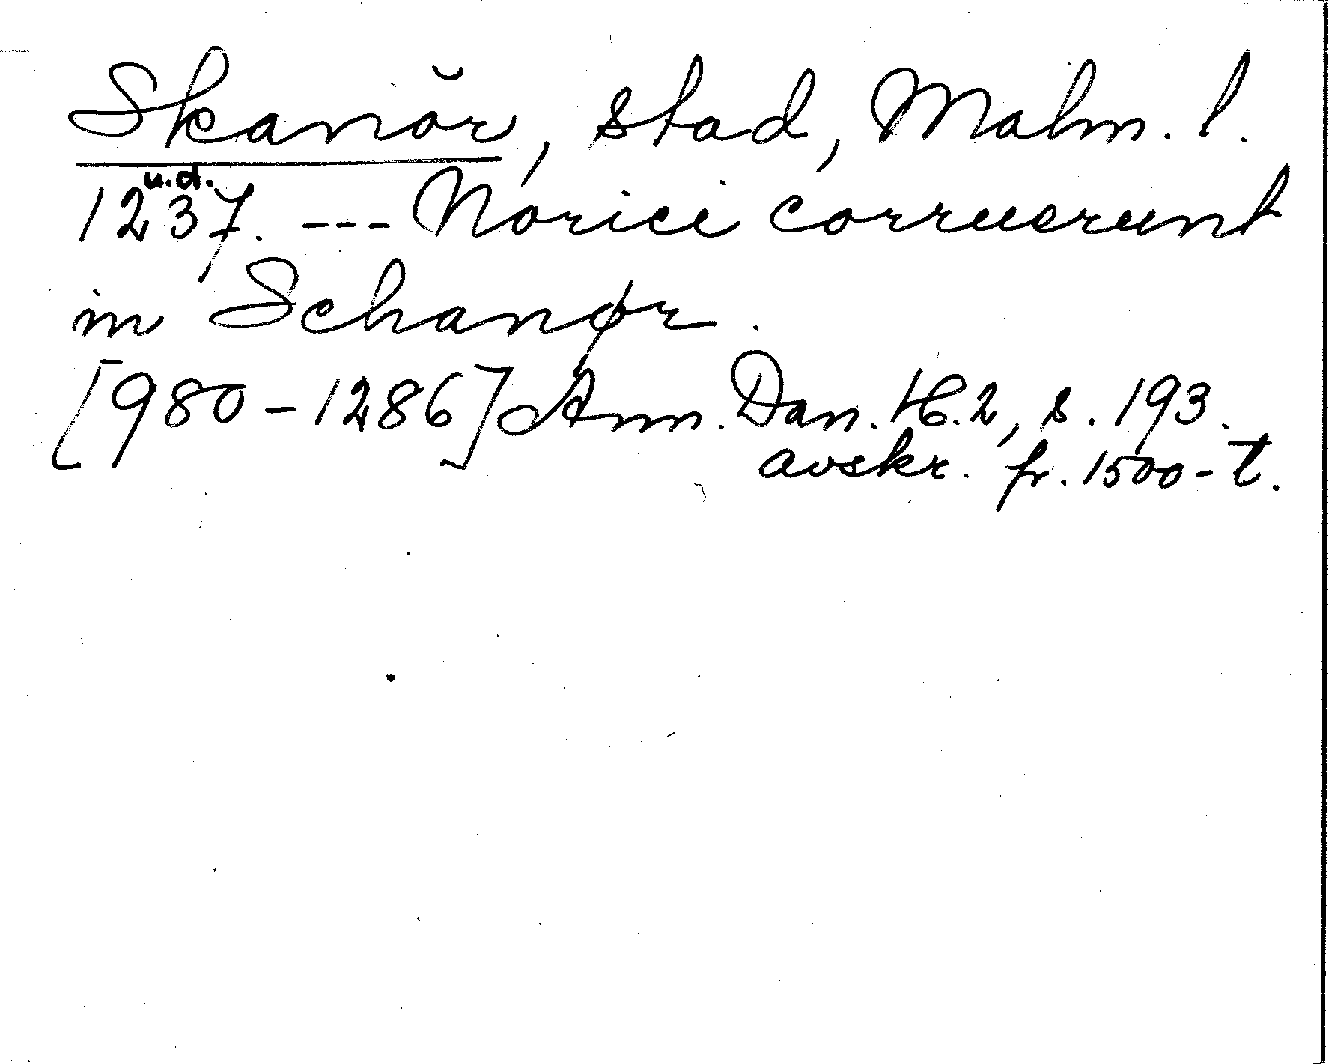 Skanör, stad, Malm. l.
u.d.
1237. --- Norici corruerunt
in Schanør.
[980-1286] Ann. Dan. H.2, s. 193.
avskr. fr. 1500-t.